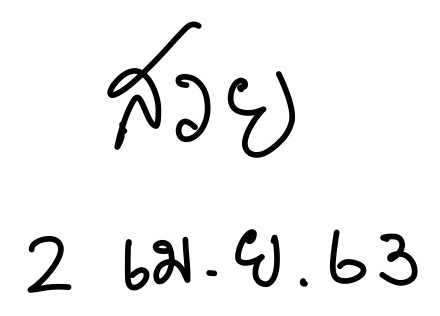 สวย
2 เม.ย.63